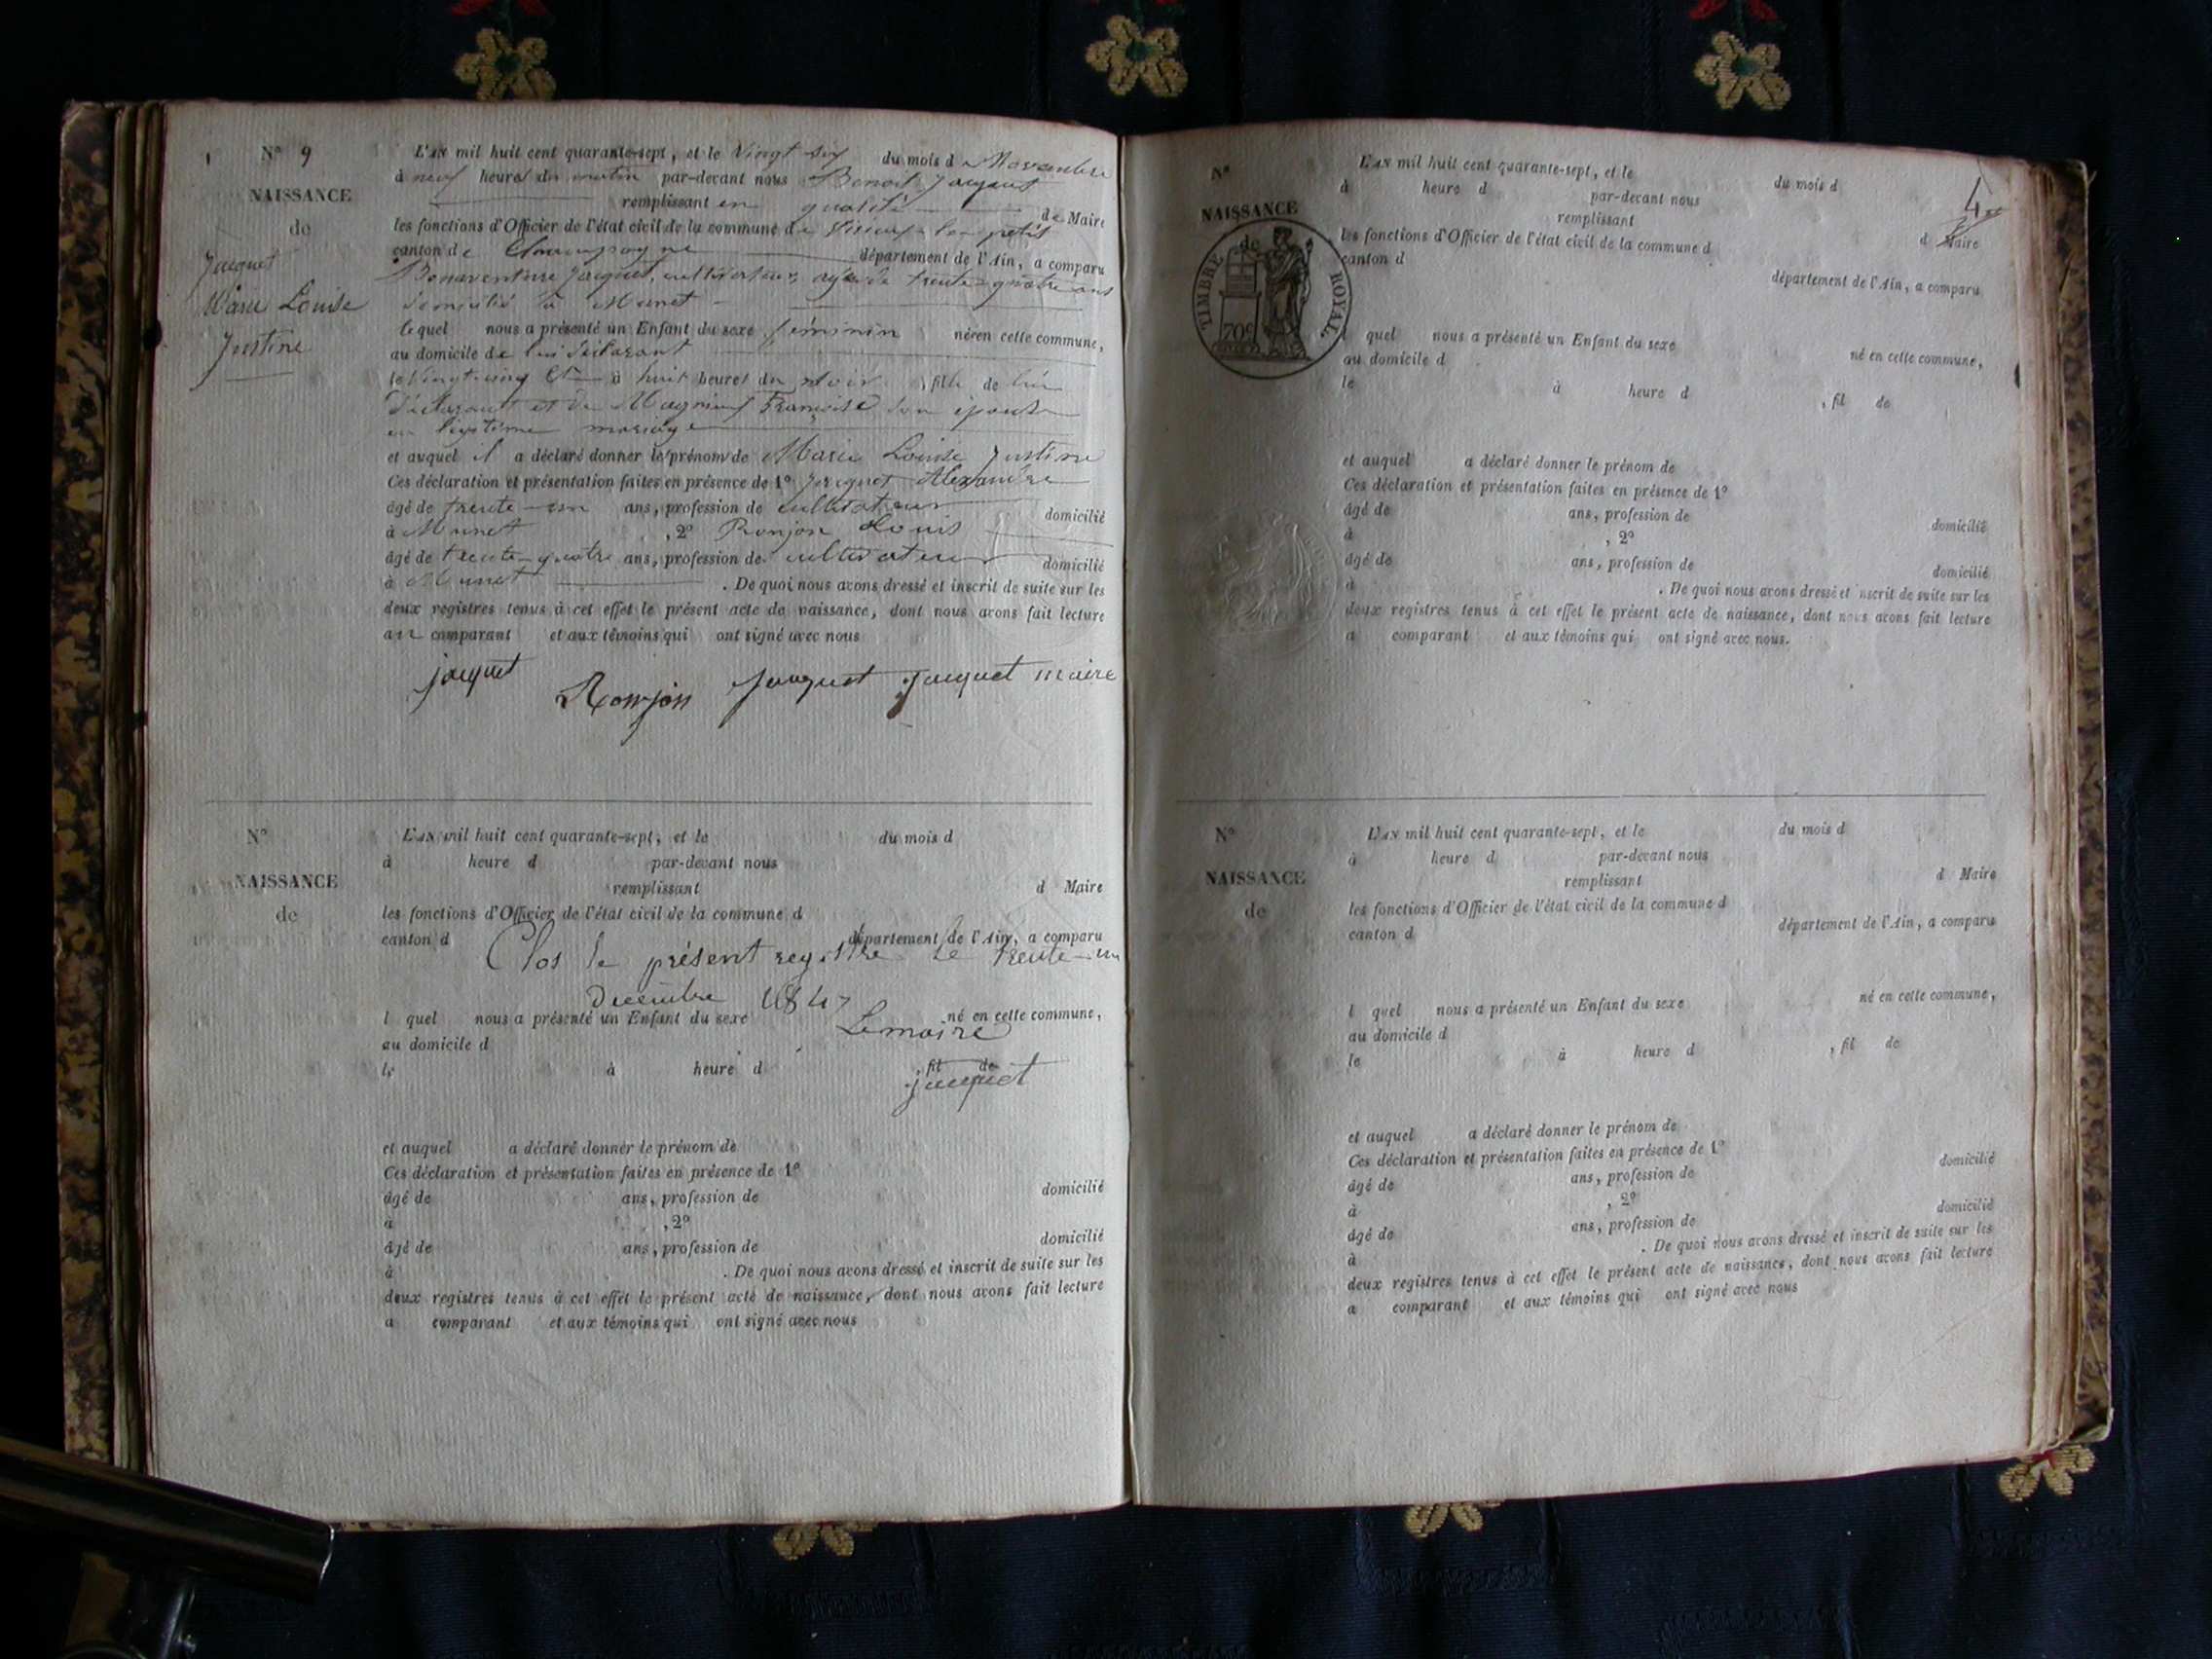 N° 9
NAISSANCE
de
Jacquet
Marie Louise
Justine
L'AN mil huit cent quarante-sept, et le Vingt six du mois d Novembre
à neuf heures du matin par-devant nous Benoit Jacquet
remplissant en qualité de Maire
les fonctions d'Officier de l'état civil de la commune de petit
canton de Champagne département de l'Ain, a comparu
Bonaventure Jacquet, cultivateur, agé de trente-quatre ans
domicilié à Munet
lequel nous a présenté un Enfant du sexe féminin née en cette commune,
au domicile de lui déclarant
le Vingt-cinq Ct à huit heures du soir, fille de lui
déclarant et de Françoise son épouse
en légitime mariage
et auquel il a déclaré donner les prénom de Marie Louise Justine
Ces déclaration et présentation faites en présence de 1° Jacquet Alexandre
âgé de trente-un ans, profession de cultivateur domicilié
à Munet, 2° Ronjon Louis
âgé de trente-quatre ans, profession de cultivateur domicilié
à Munet. De quoi nous avons dressé et inscrit de suite sur les
deux registres tenus à cet effet le présent acte de naissance, dont nous avons fait lecture
au comparant et aux témoins qui ont signé avec nous
jacquet Ronjon Jacquet Jacquet maire
N°
NAISSANCE
de
L'AN mil huit cent quarante-sept, et le du mois d
à heure d par-devant nous
remplissant d Maire
les fonctions d'Officier de l'état civil de la commune d
canton d département de l'Ain, a comparu
Clos le présent registre le trente-un
Decembre 1847
l quel nous a présenté un Enfant du sexe né en cette commune,
Le maire
au domicile d
le à heure d , fil de
jacquet
et auquel a déclaré donner le prénom de
Ces déclaration et présentation faites en présence de 1°
âgé de ans, profession de domicilié
à , 2°
âgé de ans, profession de domicilié
à . De quoi nous avons dressé et inscrit de suite sur les
deux registres tenus à cet effet le présent acte de naissance, dont nous avons fait lecture
a comparant et aux témoins qui ont signé avec nous
4
N°
NAISSANCE
de
TIMBRE ROYAL
70c
L'AN mil huit cent quarante-sept, et le du mois d
à heure d par-devant nous
remplissant d Maire
les fonctions d'Officier de l'état civil de la commune d
canton d département de l'Ain, a comparu
l quel nous a présenté un Enfant du sexe né en cette commune,
au domicile d
le à heure d , fil de
et auquel a déclaré donner le prénom de
Ces déclaration et présentation faites en présence de 1°
âgé de ans, profession de domicilié
à , 2°
âgé de ans, profession de domicilié
à . De quoi nous avons dressé et inscrit de suite sur les
deux registres tenus à cet effet le présent acte de naissance, dont nous avons fait lecture
a comparant et aux témoins qui ont signé avec nous.
N°
NAISSANCE
de
L'AN mil huit cent quarante-sept, et le du mois d
à heure d par-devant nous
remplissant d Maire
les fonctions d'Officier de l'état civil de la commune d
canton d département de l'Ain, a comparu
l quel nous a présenté un Enfant du sexe né en cette commune,
au domicile d
le à heure d , fil de
et auquel a déclaré donner le prénom de
Ces déclaration et présentation faites en présence de 1°
âgé de ans, profession de domicilié
à , 2°
âgé de ans, profession de domicilié
à . De quoi nous avons dressé et inscrit de suite sur les
deux registres tenus à cet effet le présent acte de naissance, dont nous avons fait lecture
a comparant et aux témoins qui ont signé avec nous